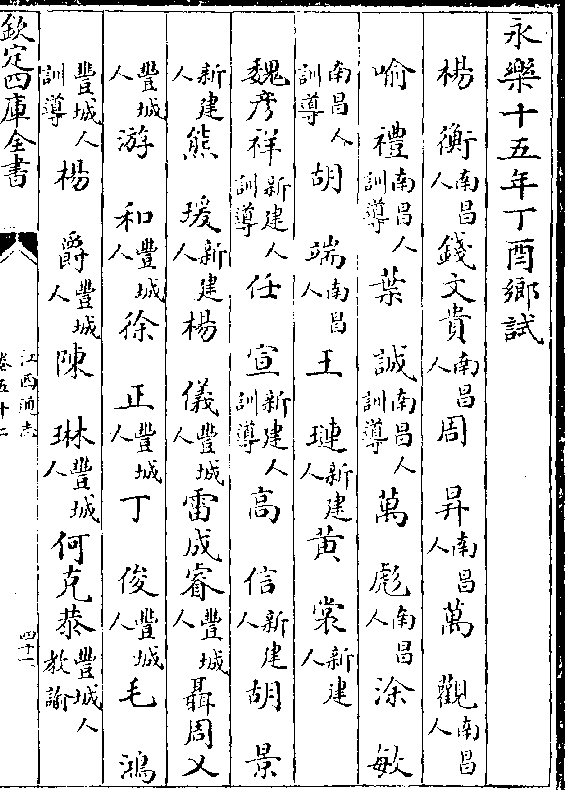 永樂十五年丁酉鄉試
楊衡南昌人錢文貴南昌人周昇南昌人萬觀南昌人
喻禮南昌人訓導葉誠南昌人訓導萬彪南昌人涂敏
南昌人訓導胡端南昌人王璉新建人黃裳新建人
魏彥祥新建人訓導任宣新建人訓導高信新建人胡景
新建人熊瑗新建人楊儀豐城人雷成睿豐城人聶周乂
豐城人游和豐城人徐正豐城人丁俊豐城人毛鴻
豐城人訓導楊爵豐城人陳琳豐城人何克恭豐城人教諭
欽定四庫全書
江西通志
卷五十二
四十一